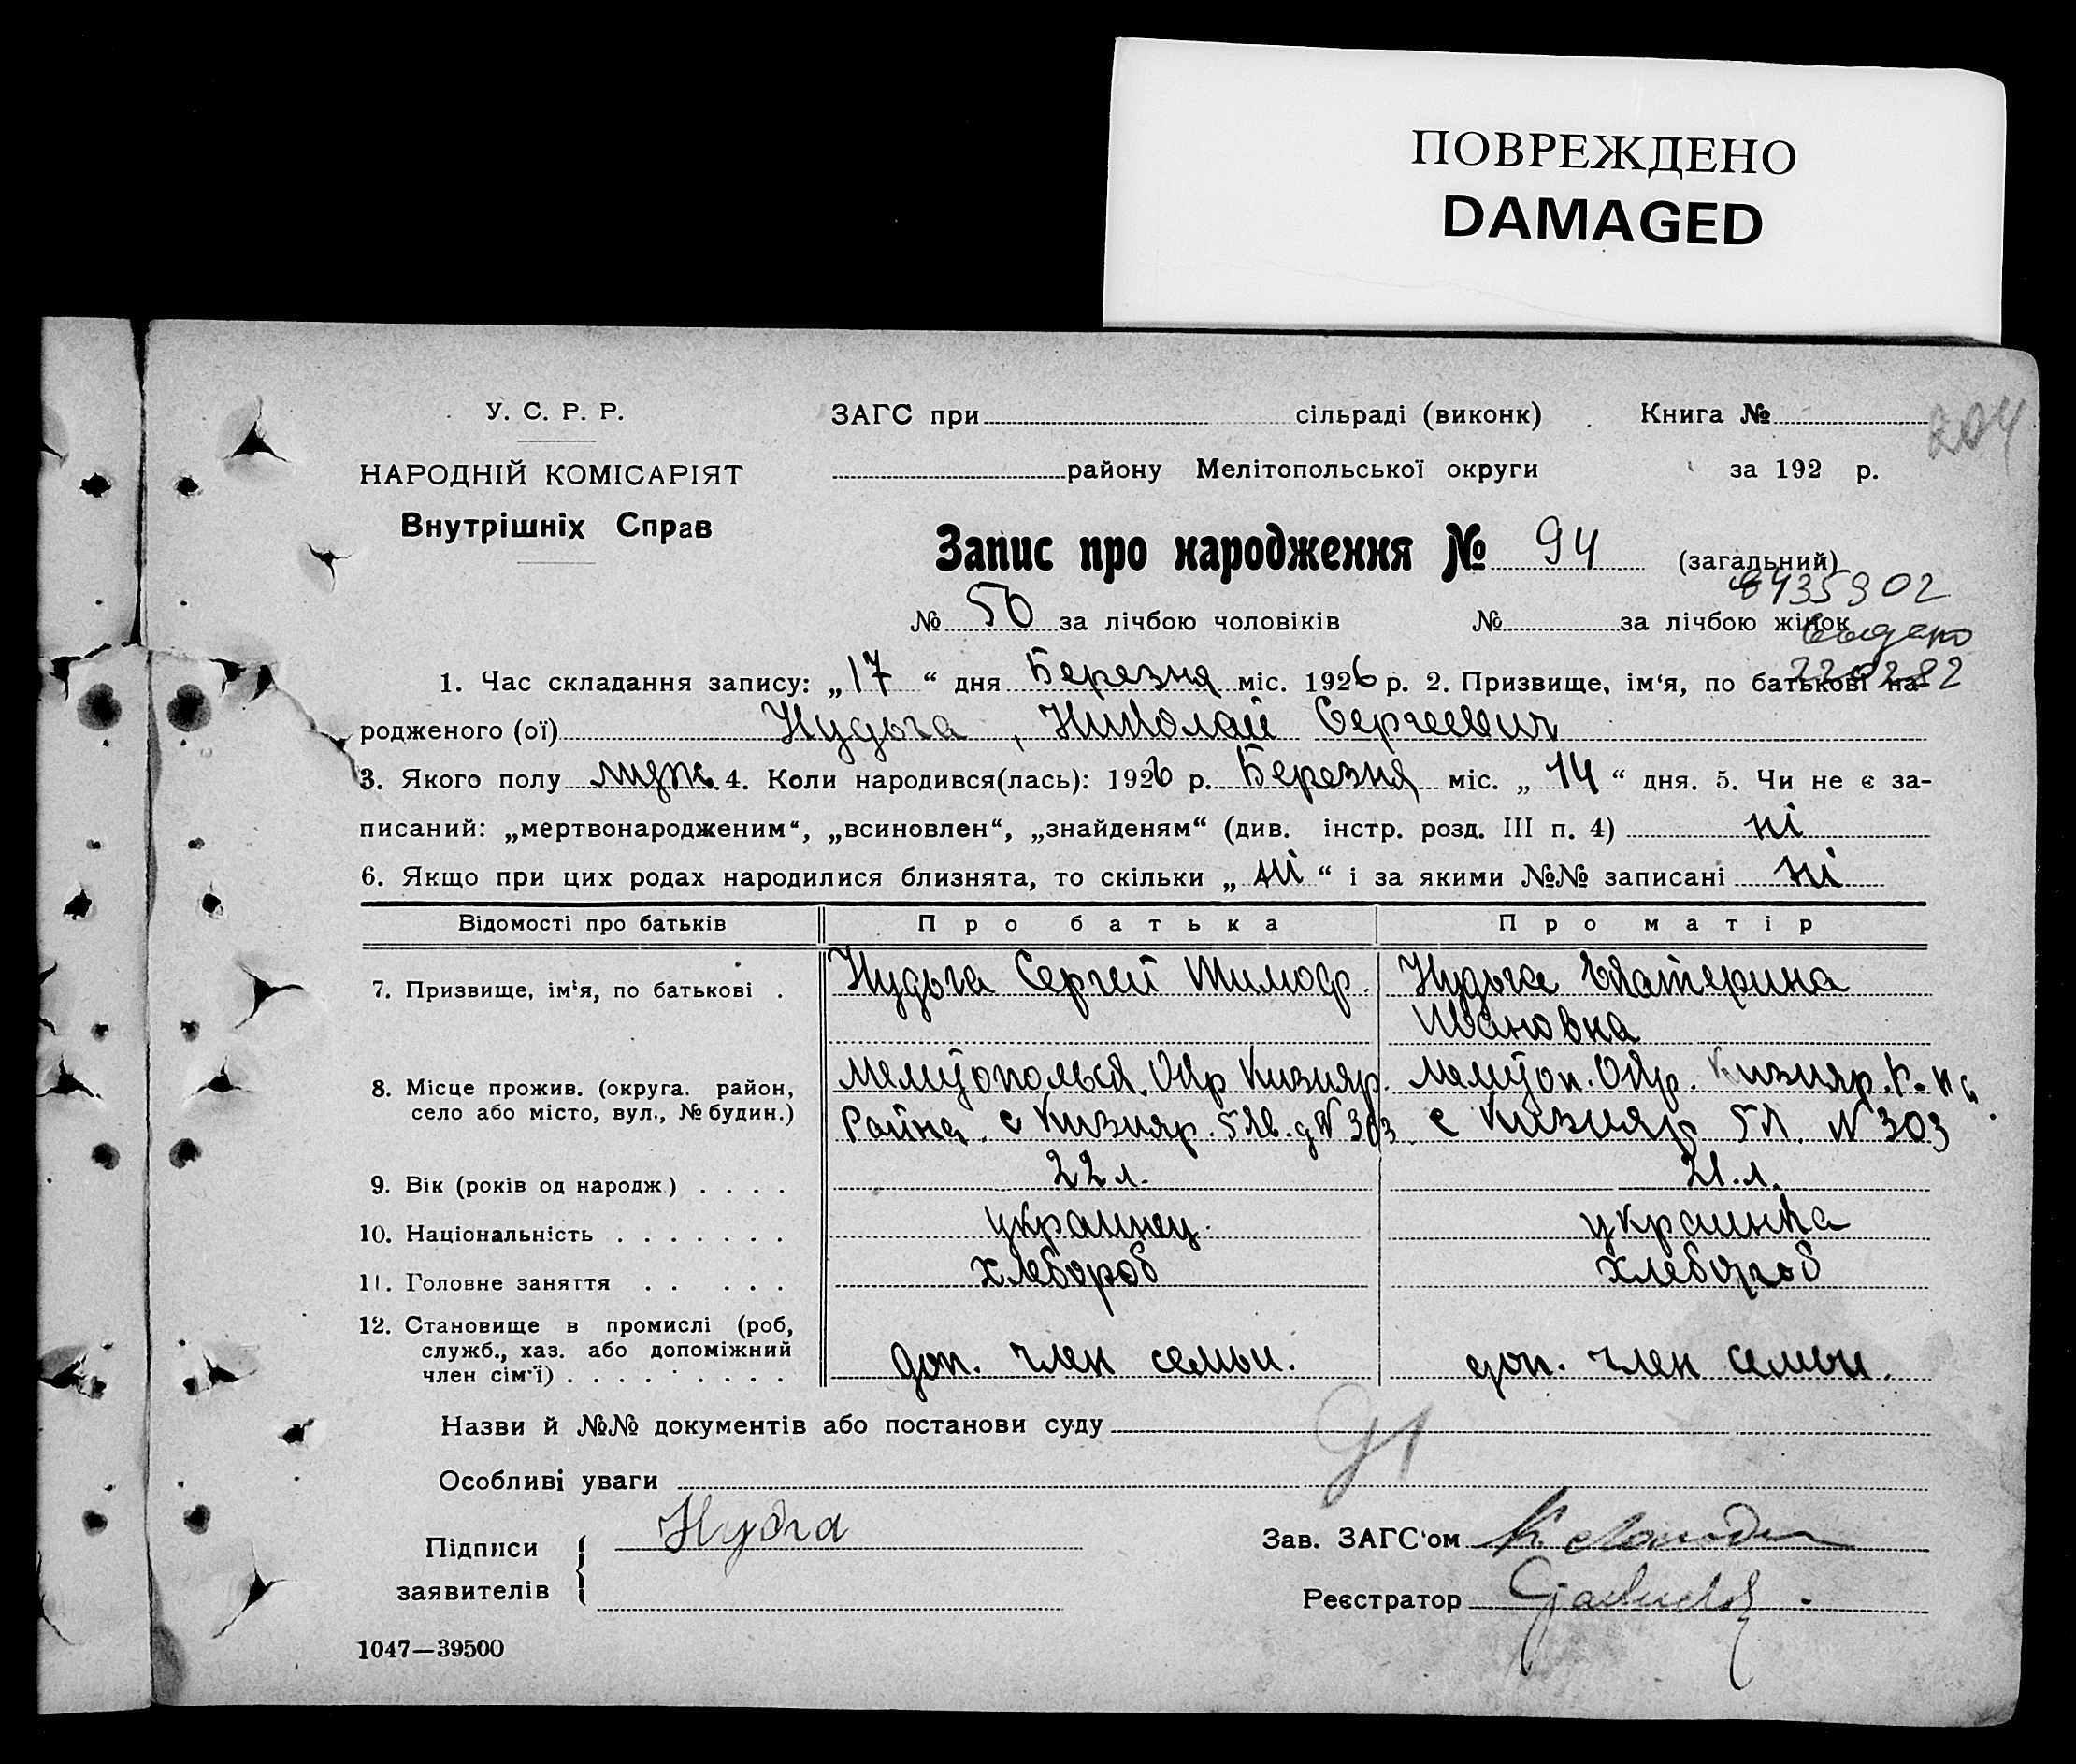 ПОВРЕЖДЕНО
DAMAGED
204
У. С. Р. Р.
НАРОДНІЙ КОМІСАРІЯТ
Внутрішніх Справ
ЗАГС при сільраді (виконк) Книга №
району Мелітопольської округи за 192 р.
Запис про народження № 94 (загальний)
№ 50 за лічбою чоловіків № за лічбою жінок
1. Час складання запису: „17“ дня Березня міс. 1926 р. 2. Призвище, ім‘я, по батькові на-
родженого (ої) Нудьга, Николай Сергеевич
3. Якого полу 4. Коли народився(лась): 1926 р. Березня міс. „14“ дня. 5. Чи не є за-
писаний: „мертвонародженим“, „всиновлен“, „знайденям“ (див. інстр. розд. III п. 4) ні
6. Якщо при цих родах народилися близнята, то скільки „ні“ і за якими №№ записані ні
Відомості про батьків Про батька Про матір
7. Призвище, ім‘я, по батькові . Нудьга Сергей Тимоф. Нудьга Екатерина
Ивановна
8. Місце прожив. (округа. район, село або місто, вул., № будин.) Окр Кизияр. Окр. Кизияр. р-на
Района. с Кизияр. д N 303 с Кизияр N 303
9. Вік (років од народж.) . . . . 22 л. 21. л.
10. Національність . . . . . . . украинец. украинка
11. Головне заняття . . . . . хлебороб хлебороб
12. Становище в промислі (роб, служб., хаз. або допоміжний член сім‘ї) . . . . . . . . . доп. член семьи. доп. член семьи.
Назви й №№ документів або постанови суду
91
Особливі уваги
Підписи заявителів Нудга
Зав. ЗАГС‘ом
Реєстратор
1047—39500